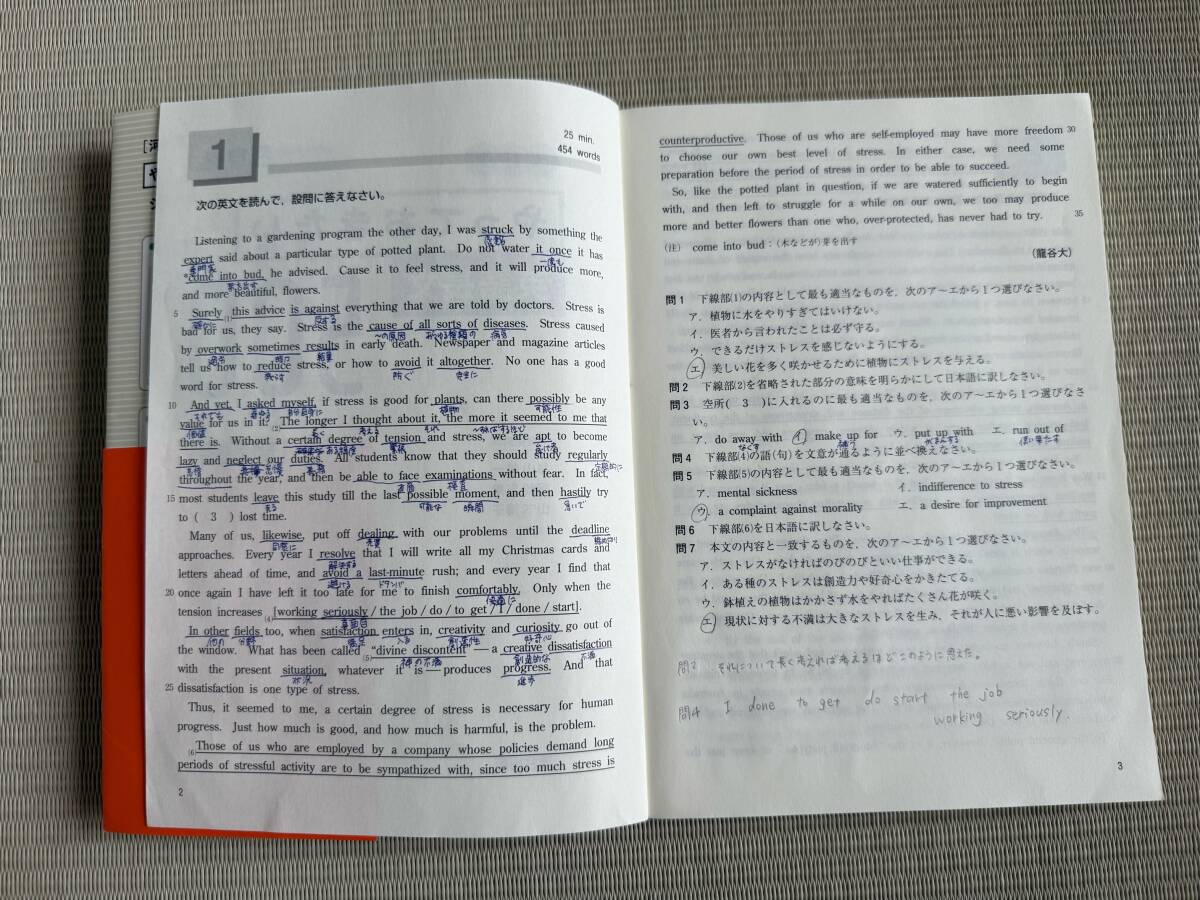 [河
や
1
25 min.
454 words
次の英文を読んで，設問に答えなさい。
Listening to a gardening program the other day, I was struck by something the
expert said about a particular type of potted plant. Do not water it once it has
専門家
一度も
*come into bud, he advised. Cause it to feel stress, and it will produce more,
芽を出す
and more beautiful, flowers.
5 Surely (1)this advice is against everything that we are told by doctors. Stress is
確かに
反する
bad for us, they say. Stress is the cause of all sorts of diseases. Stress caused
〜の原因 あらゆる種類の 病気
by overwork sometimes results in early death. Newspaper and magazine articles
過労 時々 結果
tell us how to reduce stress, or how to avoid it altogether. No one has a good
減らす 防ぐ 完全に
word for stress.
10 And yet, I asked myself, if stress is good for plants, can there possibly be any
それでも 尋ねる 自分自身に 植物 可能性
value for us in it? (2)The longer I thought about it, the more it seemed to me that
価値 長く 考える それ 〜すればするほど
there is. Without a certain degree of tension and stress, we are apt to become
ある程度 緊張
lazy and neglect our duties. All students know that they should study regularly
定期的に
throughout the year, and then be able to face examinations without fear. In fact,
直面 検査
15 most students leave this study till the last possible moment, and then hastily try
去る 可能な 瞬間 急いで
to ( 3 ) lost time.
Many of us, likewise, put off dealing with our problems until the deadline
同様に 締め切り
approaches. Every year I resolve that I will write all my Christmas cards and
解決する
letters ahead of time, and avoid a last-minute rush; and every year I find that
避ける ドタンバ
20 once again I have left it too late for me to finish comfortably. Only when the
快適に
tension increases (4)[working seriously / the job / do / to get / I / done / start].
真面目
In other fields too, when satisfaction enters in, creativity and curiosity go out of
他の 分野 満足 入る 創造性 好奇心
the window. What has been called (5)“divine discontent” — a creative dissatisfaction
神の不満 創造的な 不満
with the present situation, whatever it is — produces progress. And that
状況 進歩
25 dissatisfaction is one type of stress.
Thus, it seemed to me, a certain degree of stress is necessary for human
progress. Just how much is good, and how much is harmful, is the problem.
(6)Those of us who are employed by a company whose policies demand long
periods of stressful activity are to be sympathized with, since too much stress is
2
counterproductive. Those of us who are self-employed may have more freedom 30
to choose our own best level of stress. In either case, we need some
preparation before the period of stress in order to be able to succeed.
So, like the potted plant in question, if we are watered sufficiently to begin
with, and then left to struggle for a while on our own, we too may produce
more and better flowers than one who, over-protected, has never had to try. 35
(注) come into bud：(木などが)芽を出す
(龍谷大)
問1 下線部(1)の内容として最も適当なものを，次のア〜エから1つ選びなさい。
ア．植物に水をやりすぎてはいけない。
イ．医者から言われたことは必ず守る。
ウ．できるだけストレスを感じないようにする。
エ．美しい花を多く咲かせるために植物にストレスを与える。
問2 下線部(2)を省略された部分の意味を明らかにして日本語に訳しなさい。
問3 空所( 3 )に入れるのに最も適当なものを，次のア〜エから1つ選びなさ
い。
ア．do away with イ．make up for ウ．put up with エ．run out of
なくす 補う がまんする 使い果たす
問4 下線部(4)の語(句)を文意が通るように並べ換えなさい。
問5 下線部(5)の内容として最も適当なものを，次のア〜エから1つ選びなさい。
ア．mental sickness イ．indifference to stress
ウ．a complaint against morality エ．a desire for improvement
問6 下線部(6)を日本語に訳しなさい。
問7 本文の内容と一致するものを，次のア〜エから1つ選びなさい。
ア．ストレスがなければのびのびといい仕事ができる。
イ．ある種のストレスは創造力や好奇心をかきたてる。
ウ．鉢植えの植物はかかさず水をやればたくさん花が咲く。
エ．現状に対する不満は大きなストレスを生み，それが人に悪い影響を及ぼす。
問2 それについて長く考えれば考えるほどこのように思えた。
問4 I done to get do start the job
working seriously.
3